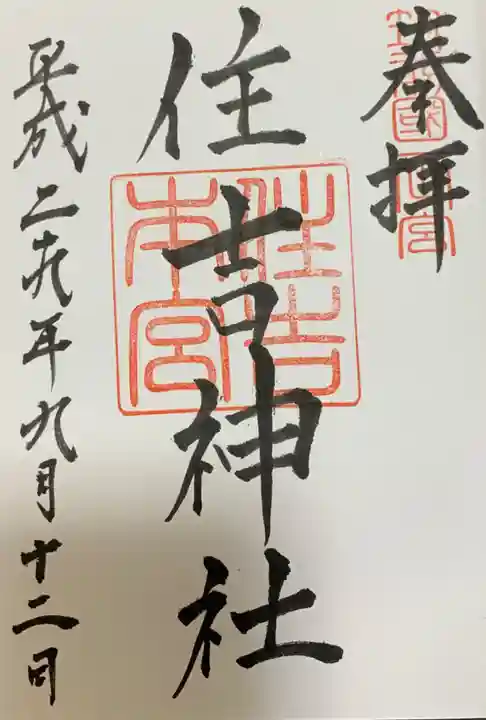 奉拝
住吉神社
住吉本宮
平成二十九年九月十二日